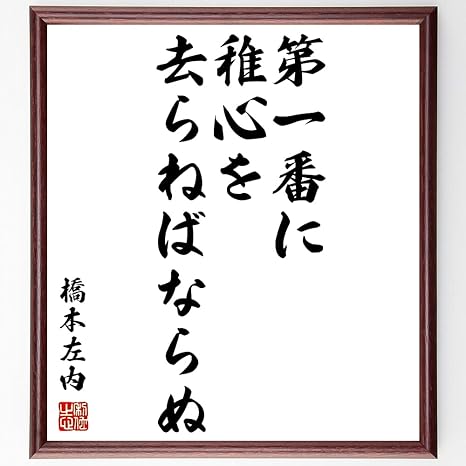 第一番に
稚心を
去らねばならぬ
橋本左内